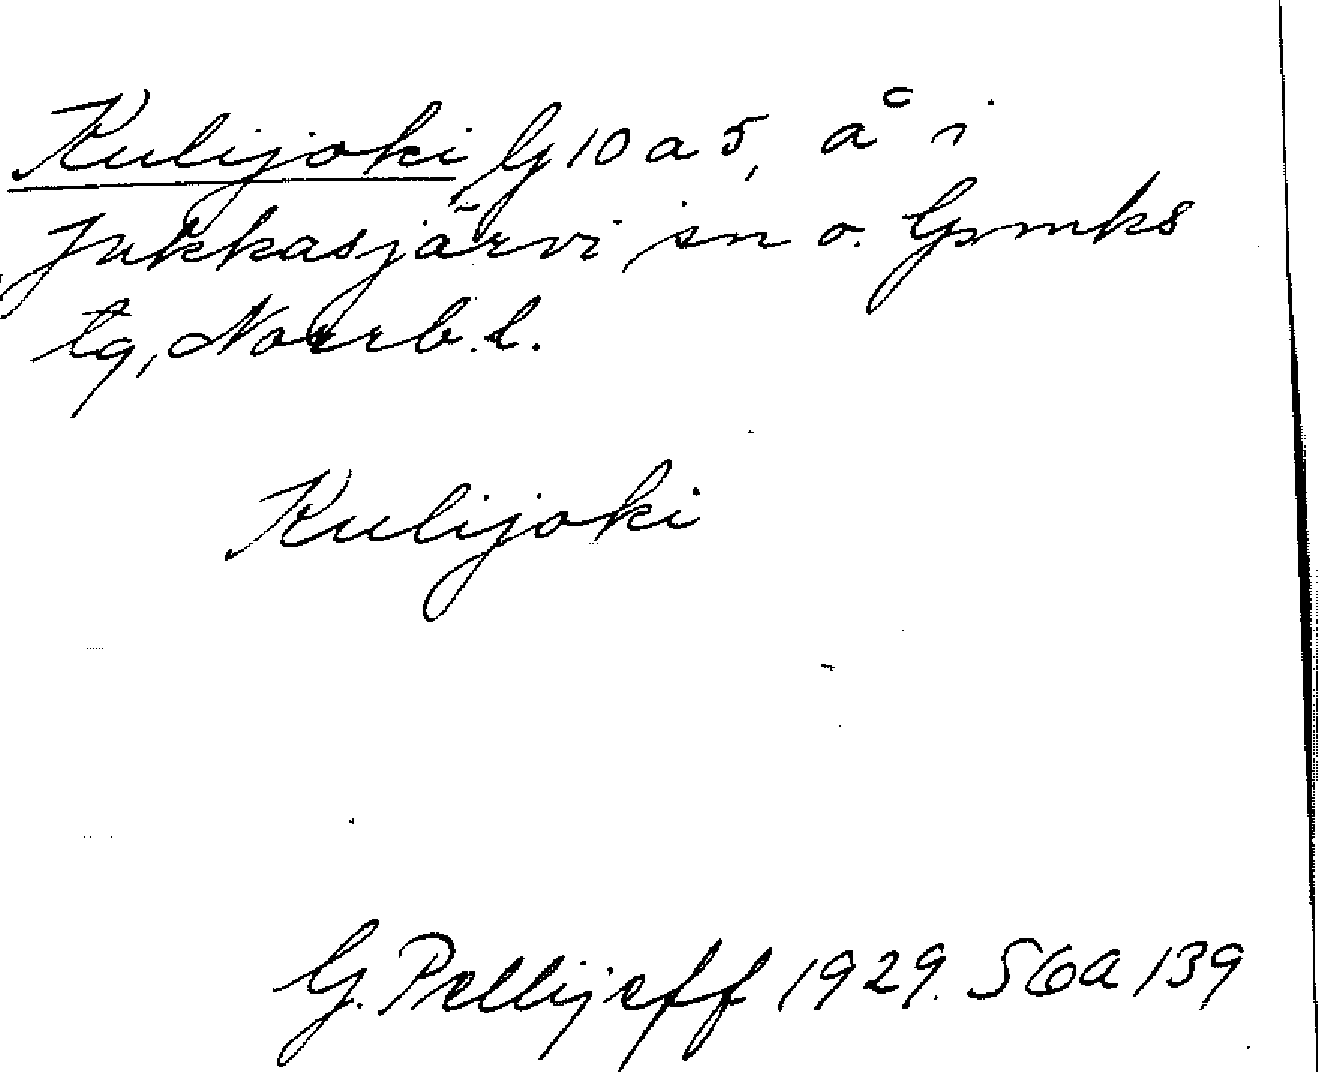 Kulijoki G10a5, å i
Jukkasjärvi sn o. Gjmks
lg, Norrb.l.
Kulijoki
G. Pellijeff 1929. S6a139